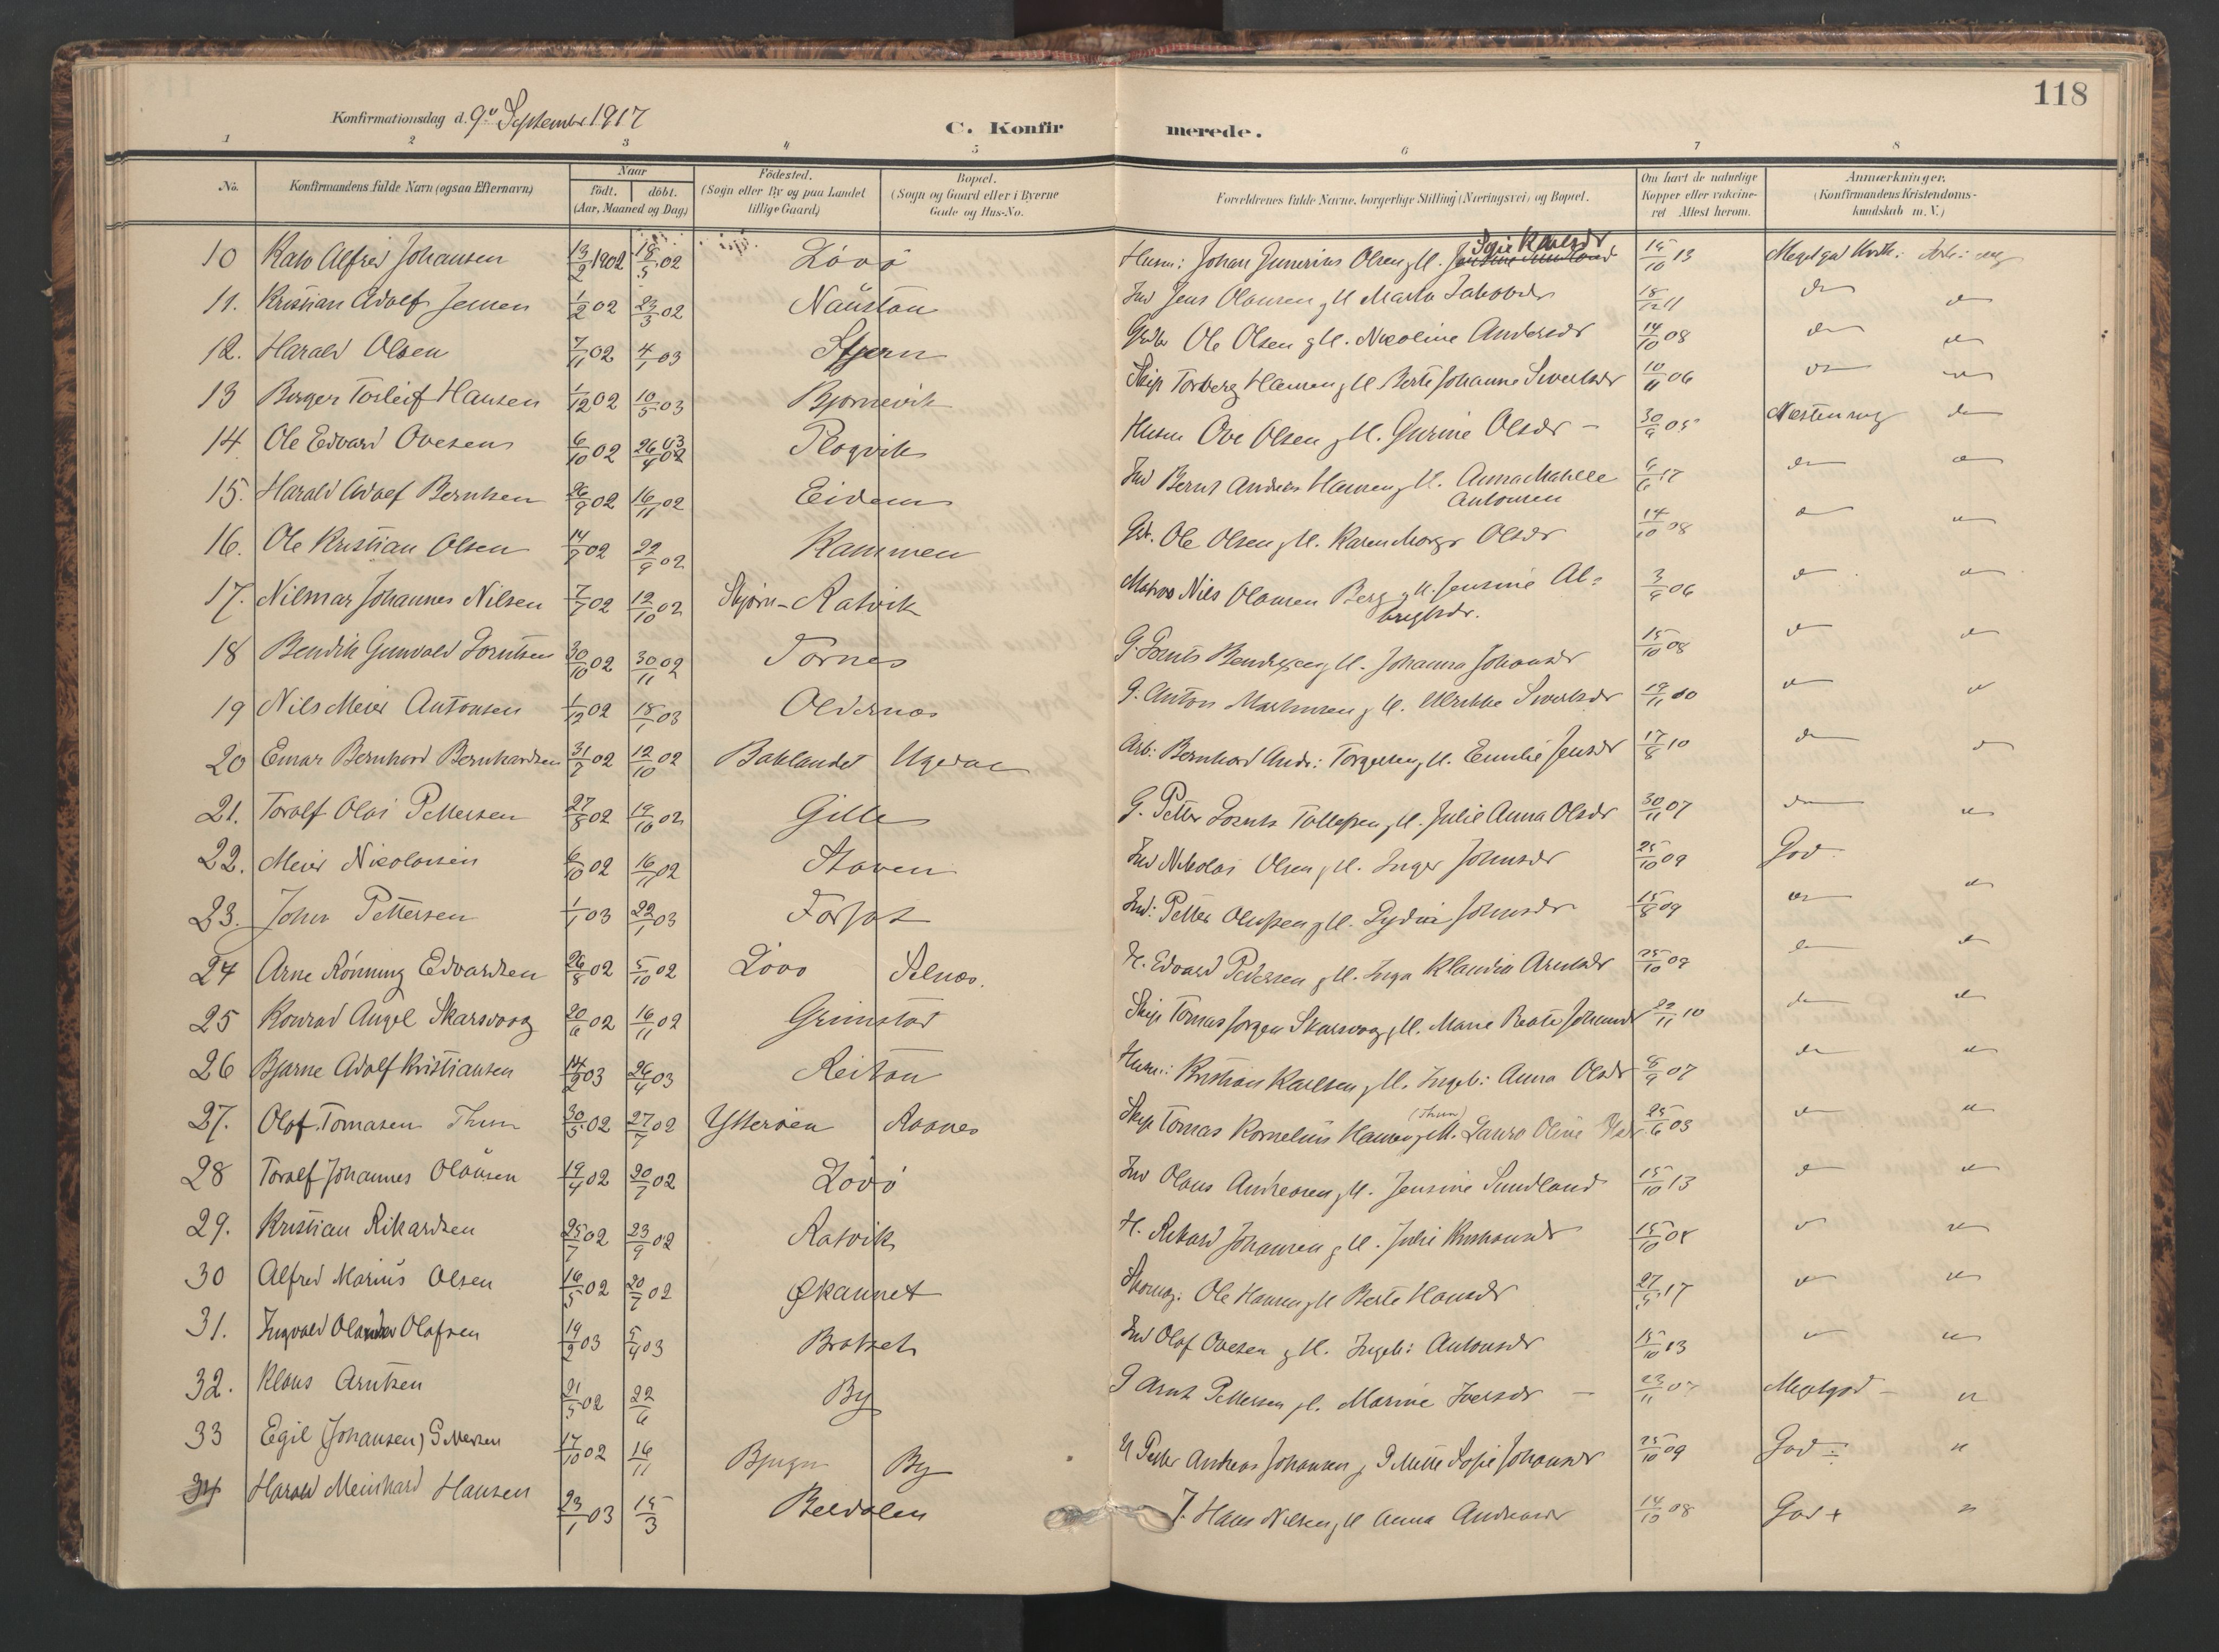 118
Konfirmationsdag d. 9d September 1917
C. Konfirmerede.
1 2 3 4 5 6 7 8
No. Konfirmandens fulde Navn (ogsaa Efternavn) Naar födt. döbt. (Aar, Maaned og Dag) Födested. (Sogn eller By og paa Landet tillige Gaard) Bopæl. (Sogn og Gaard eller i Byerne Gade og Hus-No. Forældrenes fulde Navne, borgerlige Stilling (Næringsvei) og Bopæl. Om havt de naturlige Kopper eller vakcineret Attest herom. Anmærkninger. (Konfirmandens Kristendomskundskab m. V.)
10 Alfred Johansen 13/2 1902 18/5 02 Lövö Husm: Johan Junerius Olsen g M. Sofie 15/10 13 Meget god
11. Kristian Adolf Jensen 1/2 02 23/3 02 Naustan Ind Jens Olausen g M Marta 18/12 11
12. Harald Olsen 7/11 02 4/1 03 Stjern Ole Olsen g M. Nicoline Andersdr 14/10 08
13 Birger Torleif Hansen 1/12 02 10/5 03 Bjørnevik Skip Torberg Hansen g M Berte Johanne Sivertsdr 10/11 06
14 Ole Edvard Ovesen 6/10 02 26/4 03 Plogvik Husm Ove Olsen g M. Gurine Olsdr - 30/9 05 Næsten mg
15. Harald Adolf Berntsen 26/9 02 16/11 02 Eidem Ind Bernt Andreas Hansen g M. Anna
Antonsen 6/6 17
16. Ole Kristian Olsen 14/7 02 22/9 02 Kammen Ole Olsen g M. Karen Olsdr 14/10 08
17. Hilmar Johannes Nilsen 7/7 02 12/10 02 Skjørn - Ratvik Matros Nils Olausen Berg g M. Jensine Al-
brigtsdr. 3/9 06
18 Bendik Gunvald Lorntsen 30/10 02 30/11 02 Tørnes G. Lornts Bendixsen g M. Johanna Johansdr 15/10 08
19 Nils Meier Antonsen 1/12 02 18/1 03 Oldernes G. Anton g M. Ulrikke Sivertsdr
20 Einar Bernhard Bernhardsen 31/7 02 12/10 02 Baklandet Ugedal Arb: Bernhard Andr: Torgersen g M. Emilie Jensdr 17/8 10
21. Toralf Olai Pettersen 27/8 02 19/10 02 Gille G. Petter Lornts Tollefsen g M. Julie Anna Olsdr 30/11 07
22. Meier Nicolaisen 6/10 02 16/11 02 Staven Ind Nikolai Olsen g M. Inger Johnsdr 25/10 09 God
23. Johan Pettersen 1/1 03 22/1 03 Forsat Ind: Petter g M. Lydia Johnsdr 15/8 09
24 Arne Rönning Edvardsen 26/8 02 5/10 02 Lövö Selnes. H. Edvard Pedersen g M. Inga Klaudia Arntsdr 25/10 09
25 Konrad Angel Skarsvaag 20/6 02 16/11 02 Grimstad Skip Tomas Jørgen Skarsvaag g M. Marie Beate 22/11 10
26 Bjarne Adolf Kristiansen 14/2 03 26/4 03 Reitan Husm: Kristian Karlsen g M. Ingeb: Anna Olsdr 8/9 07
27. Olaf Tomasen Thun 30/5 02 27/7 02 Ytterøen Raanes Skip Tomas Kornelius Hansen (Thun) g M. Laura Oline 25/6 03
28 Toralf Johannes Olausen 19/4 02 20/7 02 Lövö Ind Olaus Andreasen g M. Jensine Sundland 15/10 13
29. Kristian Rikardsen 25/7 02 23/9 02 Ratvik H. Rikard Johansen g M. Julie Kristiansdr 15/10 08
30 Alfred Marius Olsen 16/5 02 20/7 02 Økaunet Skomag. Ole Hansen g M Berte Hansdr 27/5 17
31. Ingvald Olander Olafsen 19/2 03 5/4 03 Bratset Ind Olaf Ovesen g M. Ingeb: Antonsdr 15/10 13
32. Klaus Arntsen 21/5 02 22/6 By G Arnt Pettersen g M. Marine Iversdr - 23/11 07 Meget god -
33 Egil (Johansen) 17/10 02 16/11 Bjugn By Peder Andreas Johansen g Mette Sofie Johansdr 25/10 09 God ÷
34 Harald Meinhard Hansen 23/1 03 15/3 Beldalen J. Hans Nilsen g M Anna Andreasdr 14/10 08 God +